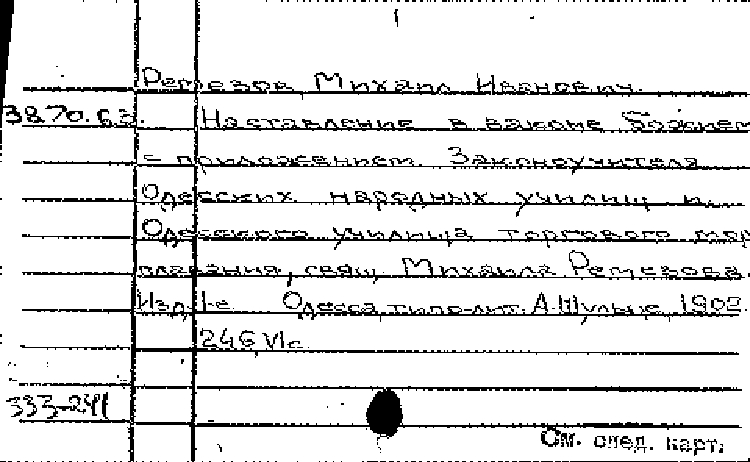 Ремезов Михаил Иванович.
3870.63. Наставление в законе Божием
с приложением. Законоучителя
Одесских народных училищ и
Одесского училища торгового мор
плавания, свящ. Михаила Ремезова.
Изд. 1-е Одесса, типо-лит. А. Шульце, 1902.
246 VI с.
333-241
См. след. карт.